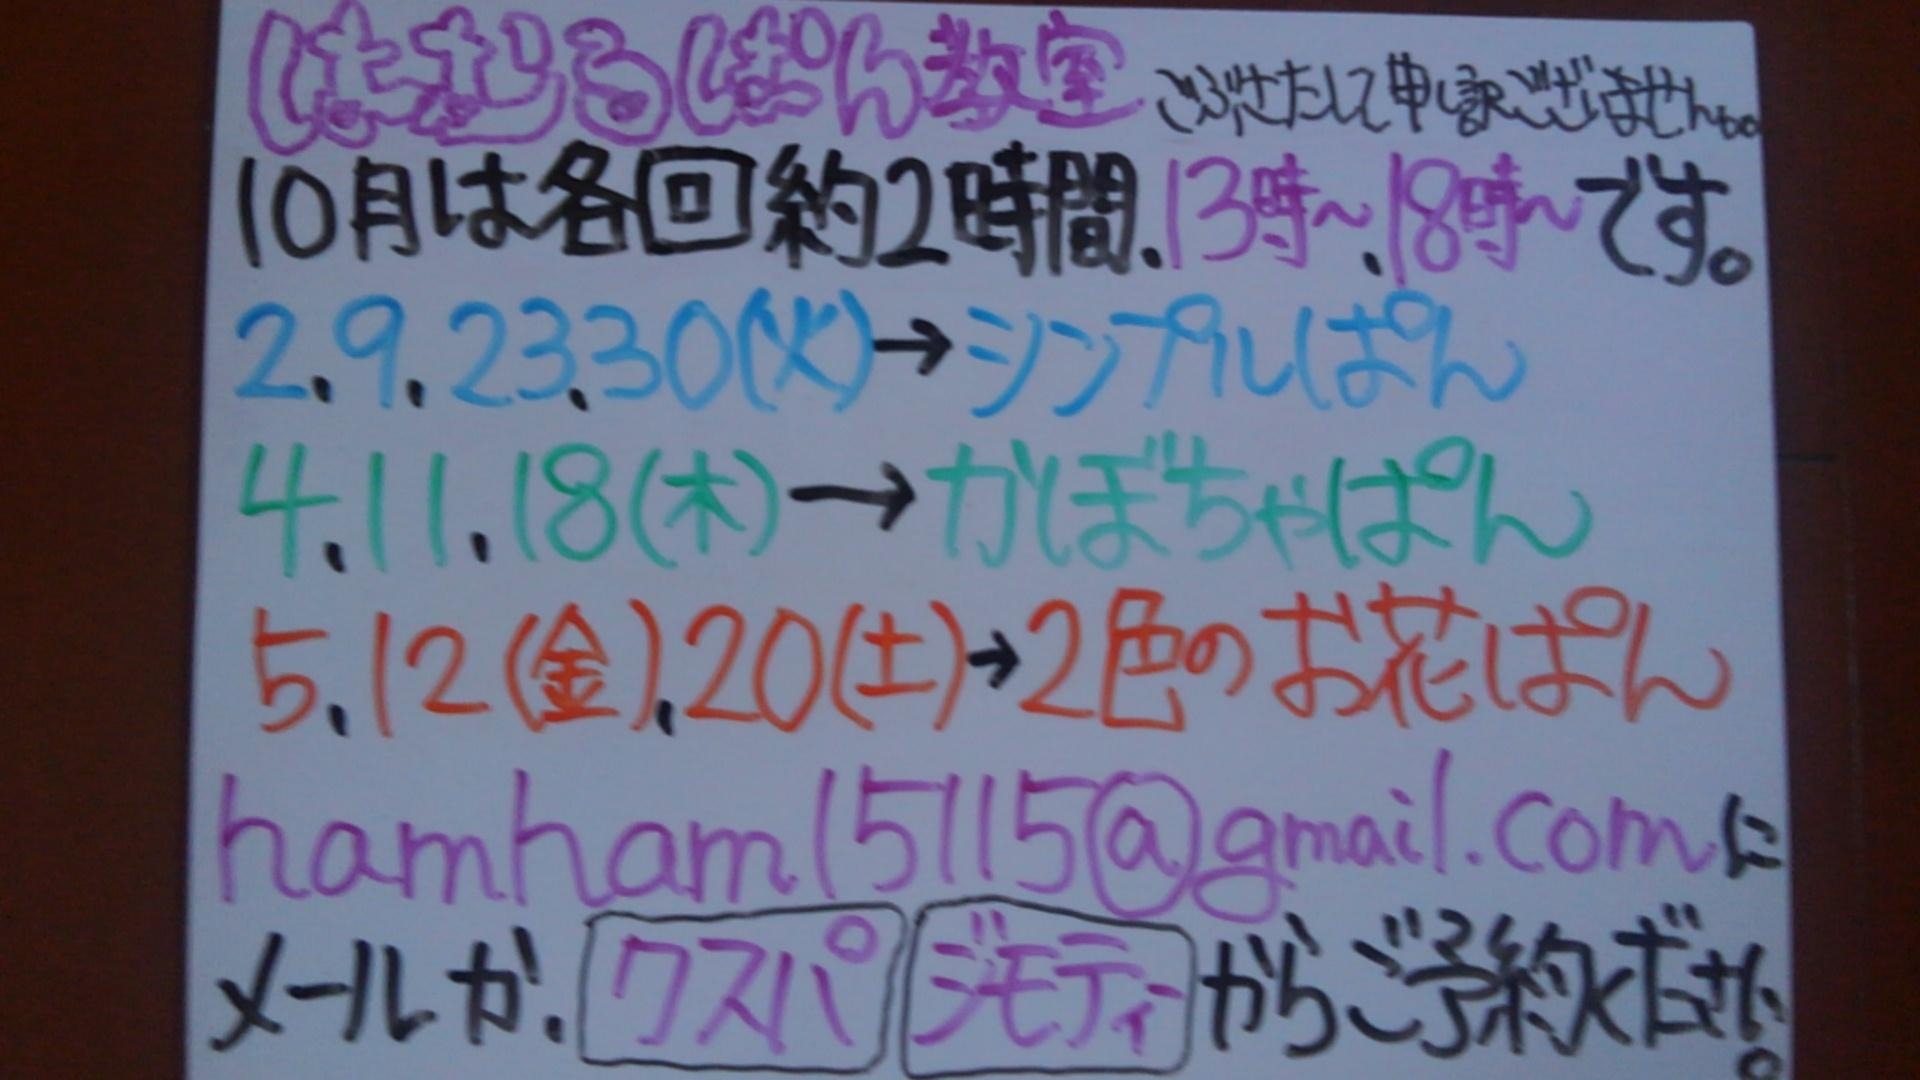 はむろぱん教室 ごぶさたして申し訳ございません。。
10月は各回約2時間.13時〜.18時〜です。
2.9.23.30(火)→シンプルぱん
4.11.18(木)→かぼちゃぱん
5.12(金).20(土)→2色のお花ぱん
hamham15115@gmail.comに
メールか.クスパ ジモティーからご予約ください。